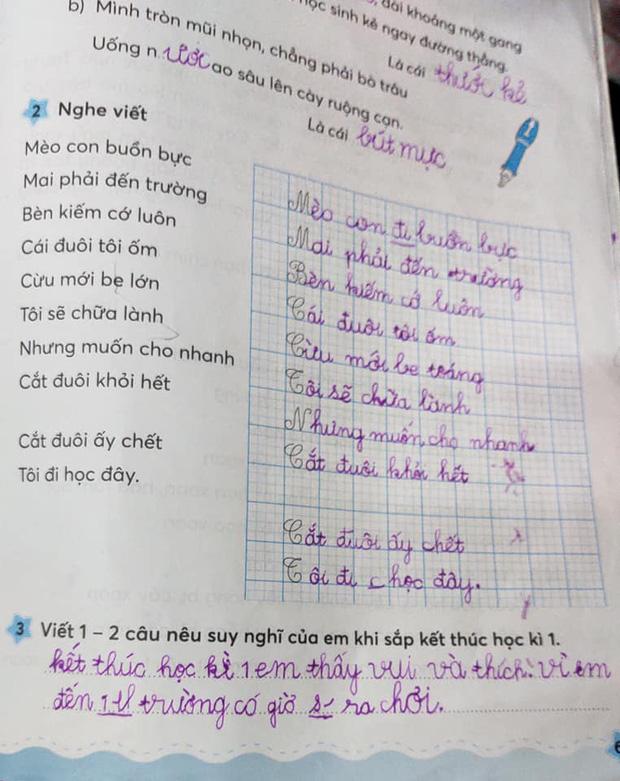 dài khoảng một gang
học sinh kẻ ngay đường thẳng.
Là cái thước kẻ
b) Mình tròn mũi nhọn, chẳng phải bò trâu
Uống nước ao sâu lên cày ruộng cạn.
Là cái bút mực
1
2 Nghe viết
Mèo con buồn bực
Mai phải đến trường
Bèn kiếm cớ luôn
Cái đuôi tôi ốm
Cừu mới be lớn
Tôi sẽ chữa lành
Nhưng muốn cho nhanh
Cắt đuôi khỏi hết
Cắt đuôi ấy chết
Tôi đi học đây.
Mèo con đi buồn bực
Mai phải đến trường
Bèn kiếm cớ luôn
Cái đuôi tôi ốm
Cừu mới be toáng
Tôi sẽ chữa lành
Nhưng muốn cho nhanh
Cắt đuôi khỏi hết
Cắt đuôi ấy chết
Tôi đi học đây.
3 Viết 1 - 2 câu nêu suy nghĩ của em khi sắp kết thúc học kì 1.
kết thúc học kì 1 em thấy vui và thích: vì em
đến trường có giờ ra chơi.